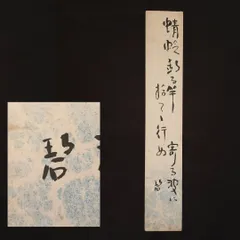 蜻蛉釣る竿
捨てゝ行
寄る波に
碧
碧